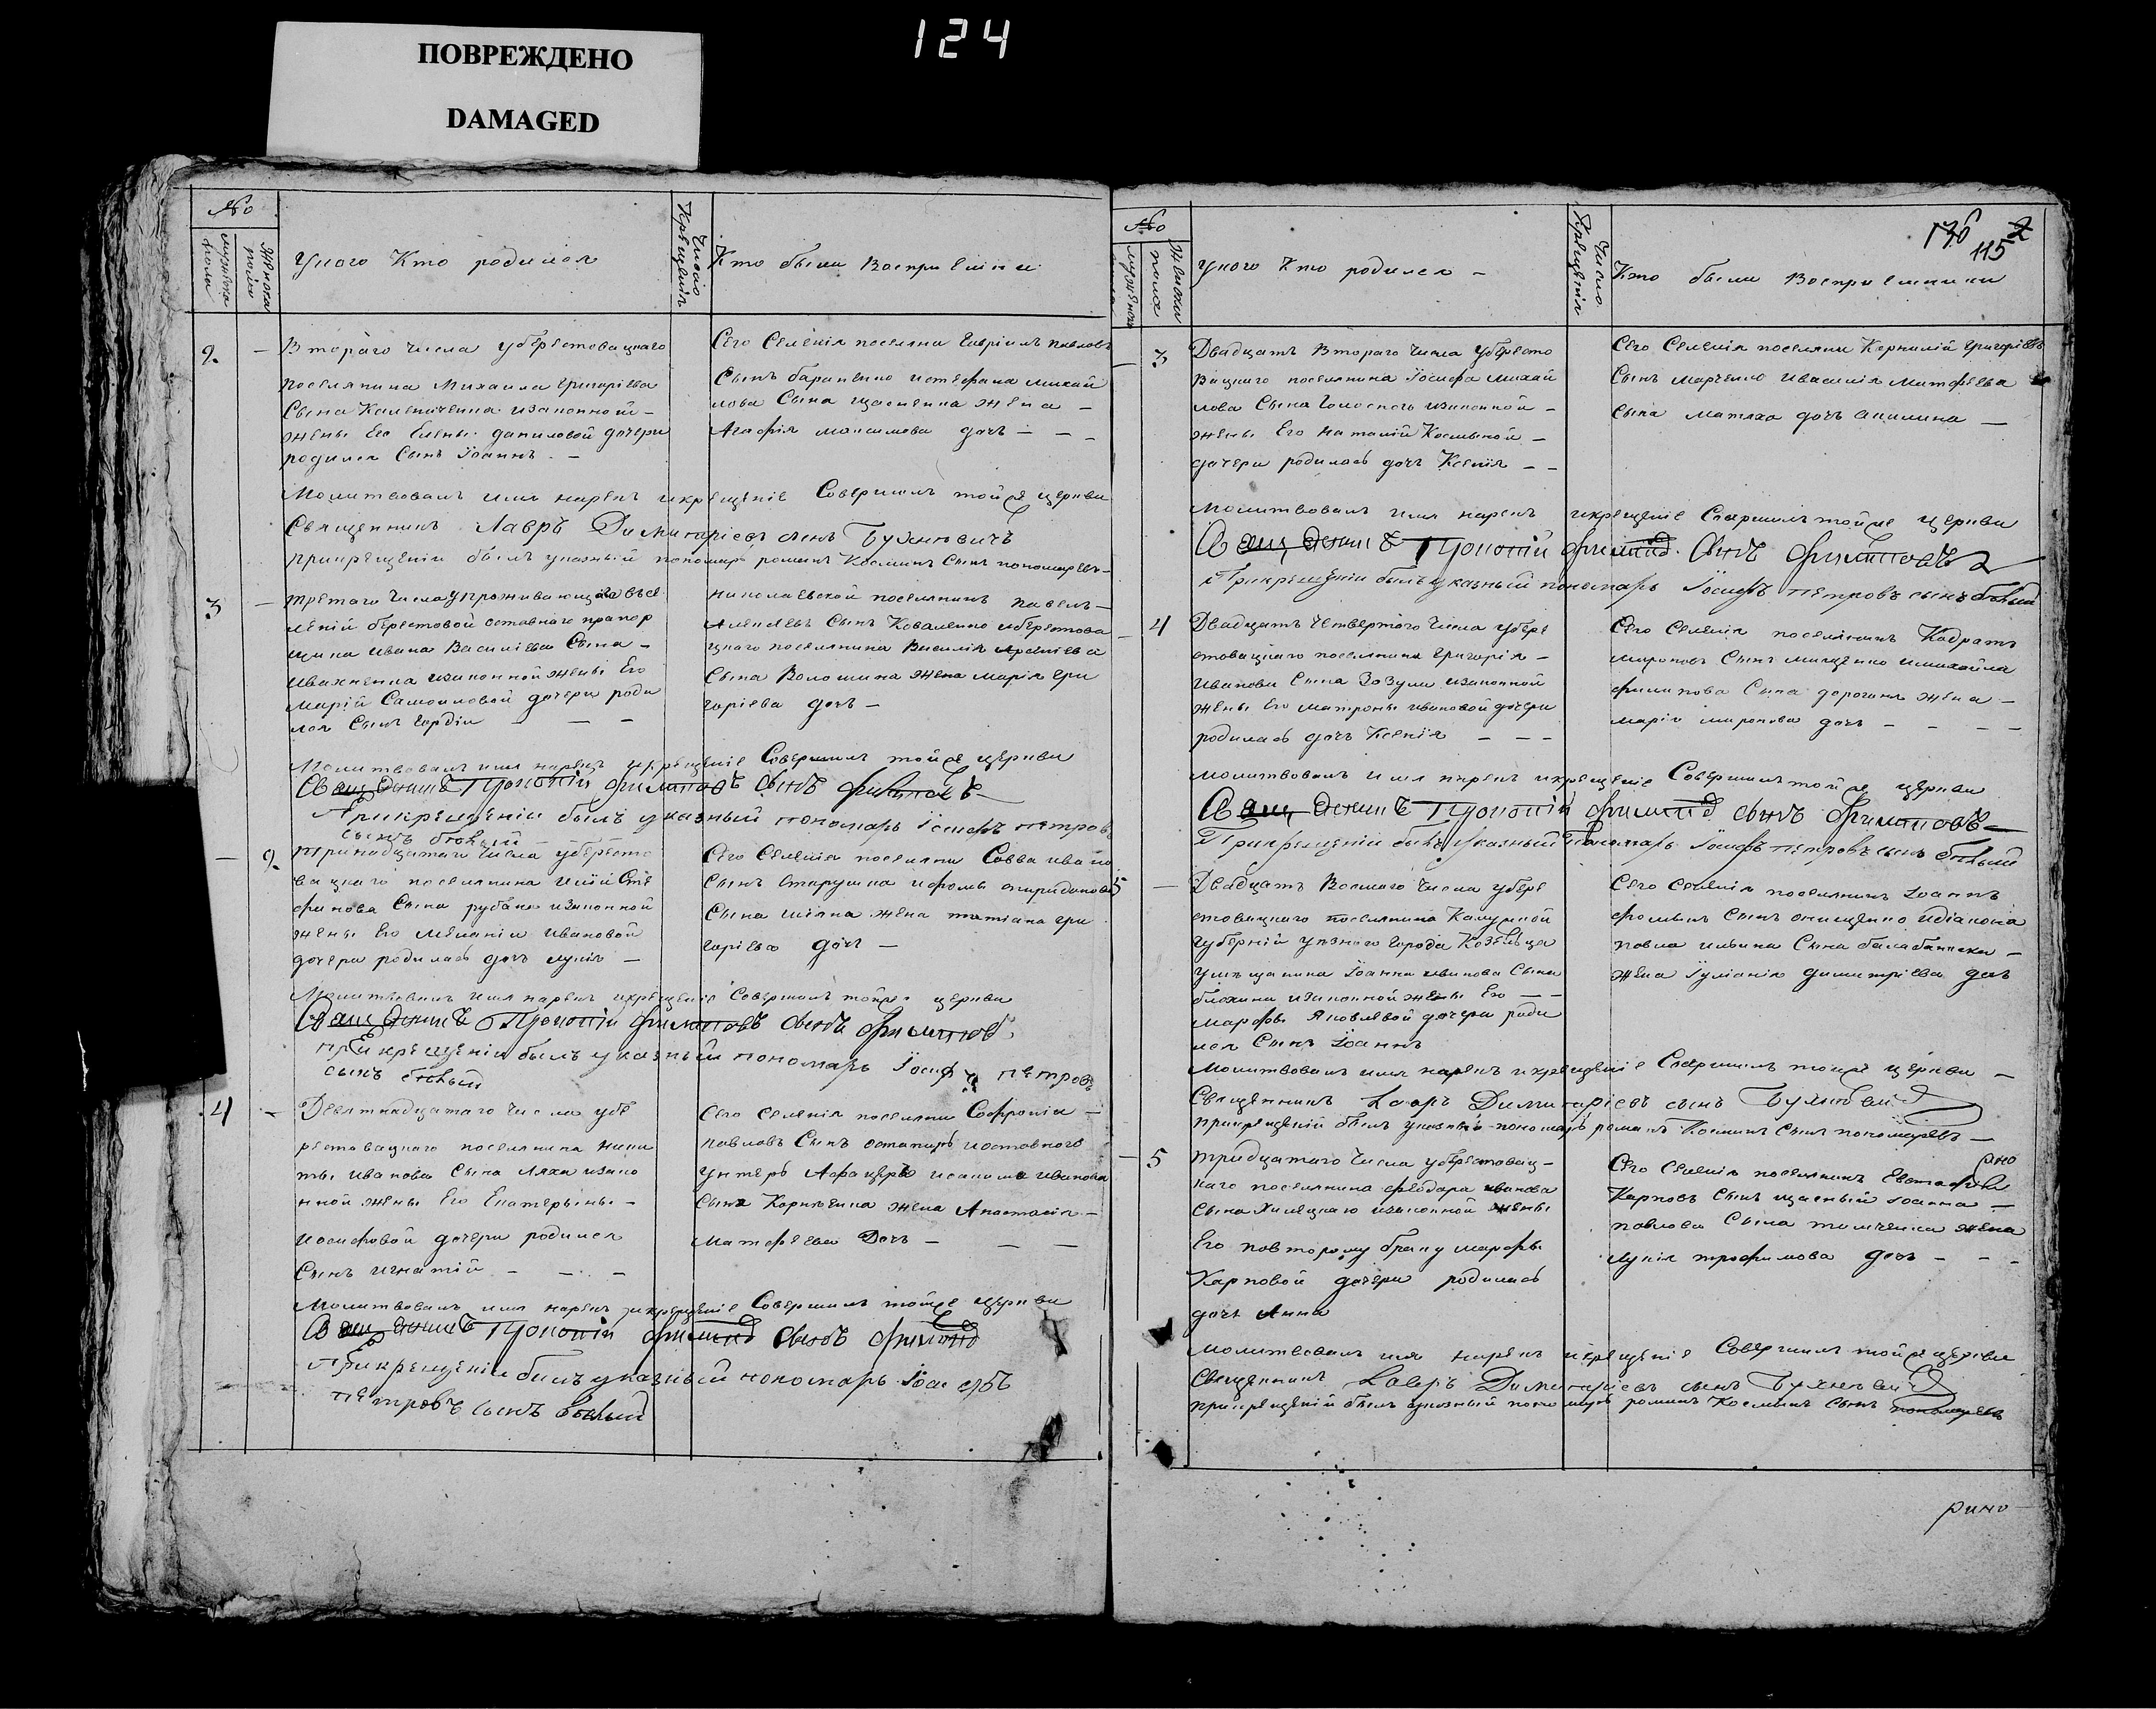 ПОВРЕЖДЕНО
DAMAGED
124
№
мужеска пола
женска пола
У кого Кто родился
Число Крещенія
Кто были Восприемники
2. — Втораго Числа уберестовацкаго
поселянина Михаила григоріева
Сына Калениченка изаконной —
жены Его Елены даниловой дочери
родился Сынъ Іоаннъ. —
Сего Селенія поселяна Гавріилъ павловъ
Сынъ бараненко истефана михай
лова Сына щасненка жена —
Агафія максимова дочь — — —
Молитвовалъ имя нарекъ икрещеніе Совершилъ тойже церкви
Священникъ Лавръ Димитріевъ сынъ Бухневичъ
прикрещеніи былъ указный пономарь романъ Косминъ Сынъ пономаревъ —
3 — третаго Числа упроживающаго въсе
леній берестовой оставнаго прапор
щика ивана Василіева Сына —
ивахненка изаконной жены Его
маріи Самоиловой дочери роди
лся Сынъ Гордій — — —
николаевской поселянинъ павелъ —
Алексеевъ Сынъ Коваленко иберестова
цкаго поселянина Василія
Сына Волошина жена марія гри
горіева дочь —
Молитвовалъ имя нарекъ икрещеніе Совершилъ тойже церкви
Священникъ Прокопій филиповъ сынъ филиповъ
Прикрещеніи былъ указный пономарь Іосифъ петровъ
сынъ белый
— 2. тринадцатаго Числа убересто
вацкаго поселянина иліи Сте
фанова Сына рубана изаконной
жены Его меланіи ивановой
дочери родилась дочь лукія —
Сего Селенія поселяни Савва ивано
Сынъ старушка ифомы спиридонова
Сына шіяна жена татіана гри
горіева дочь —
Молитвовалъ имя нарекъ икрещеніе Совершилъ тойже церкви
Священникъ Прокопій филиповъ сынъ филиповъ
прикрещеніи былъ указный пономарь Іосифъ петровъ
сынъ белый
4 — Девятнадцатаго Числа убе
рестовацкаго поселянина ники
ты иванова Сына ляха изако
нной жены Его Екатерины —
иосифовой дочери родился
Сынъ игнатій — — —
Сего селенія поселяни Софроніи —
павловъ Сынъ остапи иоставного
унтеръ Афацера исакима иванова
Сына Корнеенка жена Анастасія —
Матфеева Дочь — — —
Молитвовалъ имя нарекъ икрещеніе Совершилъ тойже церкви
Священникъ Прокопій филиповъ сынъ филиповъ
Прикрещеніи былъ указный пономарь Іосифъ
петровъ сынъ белый
176 2
115
№
мужеска
женска пола
У кого Кто родился —
Число Крещенія
Кто были Восприемники
— 3 Двадцать Втораго Числа убересто
вацкаго поселянина Іосифа михай
лова Сына Голоснаго изаконной —
жены Его наталіи Косминой —
дочери родилась дочь Ксенія — —
Сего Селенія поселяни Корнилій григоріевъ
Сынъ марченко ивасилія матфеева
сына матяха дочь акилина —
Молитвовалъ имя нарекъ икрещеніе Совершилъ тойже церкви
Священникъ Прокопій филиповъ сынъ филиповъ
Прикрещеніи былъ указный пономарь Іосифъ петровъ сынъ белый
— 4 Двадцать Четвертого Числа убере
стовацкаго поселянина григорія —
иванова Сына Зозули изаконной
жены Его матроны ивановой дочери
родилась дочь Ксенія — — —
Сего Селенія поселянинъ Кодратъ
мироновъ Сынъ мищенко имихайла
филипова Сына дорогана жена —
марія миронова дочь — — — —
Молитвовалъ имя нарекъ икрещеніе Совершилъ тойже церкви
Священникъ Прокопій филиповъ сынъ филиповъ —
Прикрещеніи былъ указный Пономарь Іосифъ петровъ сынъ белый
5 — Двадцать Восмаго Числа убере
стовацкаго поселянина Калужской
губерніи уезнаго города Козельца
умещанина Іоанна иванова Сына
блохина изаконной жены Его — —
марфы Яковлевой дочери роди
лся Сынъ Іоаннъ
Сего Селенія поселянинъ Іоаннъ
фоминъ Сынъ онищенко идіакона
павла ильина Сына балабанскаи —
жена Іуліанія димитріева дочь
Молитвовалъ имя нарекъ икрещеніе Совершилъ тойже церкви —
Священникъ Лавръ Димитріевъ сынъ Бухневичъ
прикрещеній былъ указный пономарь романъ Косминъ Сынъ пономаревъ —
— 5 тридцатаго Числа уберестовац —
каго поселянина феодара иванова
Сына Хилецкаго изаконной жены
Его повторому браку марфы
Карповой дочери родилась
дочь Анна
Сего Селенія поселянинъ Евстафій
Карповъ Сынъ щасный іоанна —
павлова Сына толмченка жена
лукія трофимова дочь — — —
Молитвовалъ имя нарекъ икрещеніе Совершилъ тойже церкви
Священникъ Лавръ Димитріевъ сынъ Бухневичъ
прикрещеній былъ указный пономарь романъ Косминъ Сынъ пономаревъ